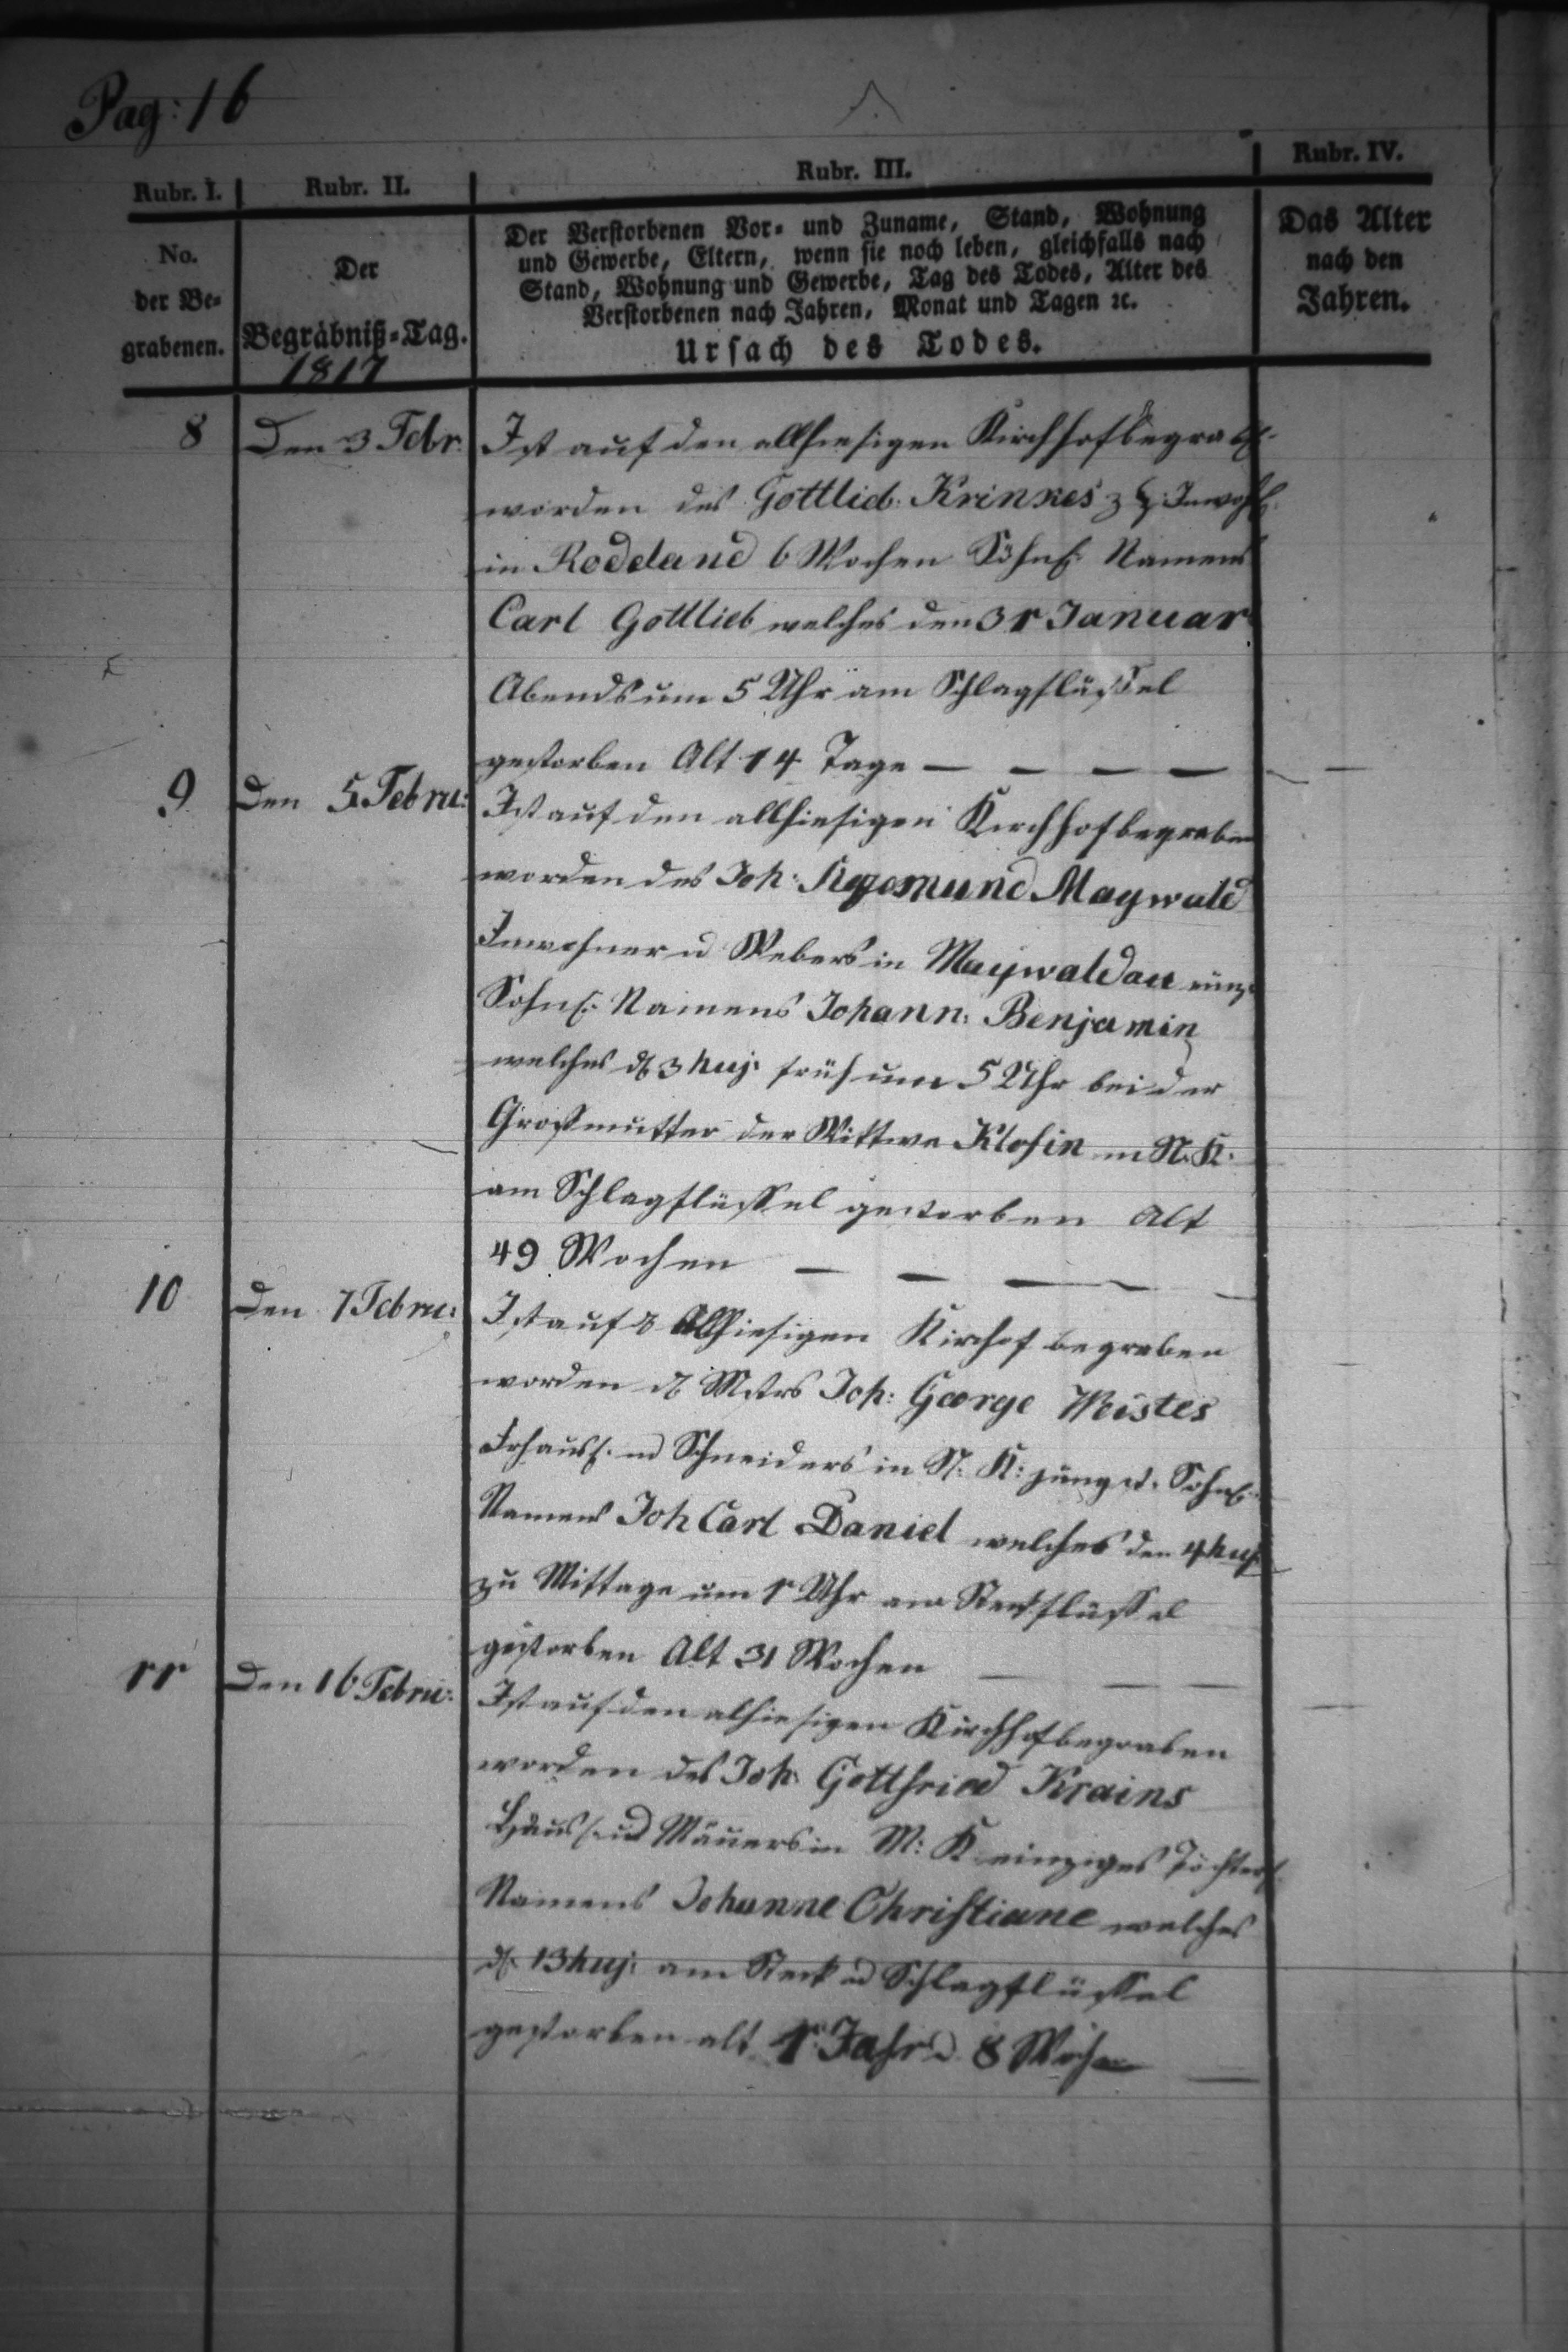 Pag: 16
Rubr. I.
Rubr. II.
Rubr. III.
Rubr. IV.
No.
der Be=
grabenen.
Der
Begräbniß=Tag.
1817
Der Verstorbenen Vor= und Zuname, Stand, Wohnung
und Gewerbe, Eltern, wenn sie noch leben, gleichfalls nach
Stand, Wohnung und Gewerbe, Tag des Todes, Alter des
Verstorbenen nach Jahren, Monat und Tagen ꝛc.
Ursach des Todes.
Das Alter
nach den
Jahren.
8 Den 3 Febr. Ist auf den allhiesigen Kirchhof begrab:
worden des Gottlieb: Krinkes Inwoh:
in Rodeland 6 Wochen Söhnl: Namens
Carl Gottlieb welches den 31 Januar
Abends um 5 Uhr am Schlagflüssel
gestorben Alt 14 Tage — — — —
9 Den 5 Febru: Ist auf den allhiesigen Kirchhof begraben
worden des Joh: Maywald
Inwohner u Webers in Maywaldau
Söhnl: Namens Johann: Benjamin
welches d 3 huj: früh um 5 Uhr bei der
Großmutter der Wittwe Klosin in N. K.
am Schlagflüssel gestorben Alt
49 Wochen — — —
10 Den 7 Febru: Ist auf d Allhiesigen Kirchof begraben
worden d Mstrs Joh: George
Frhäusl. und Schneiders in N: K: jüngst. Söhnl:
Namens Joh Carl Daniel welches den 4 huj:
zu Mittage um 1 Uhr am Steckflüssel
gestorben Alt 31 Wochen — — —
11 Den 16 Febru: Ist auf den alhiesigen Kirchhof begraben
worden des Joh: Gottfried Krains
Häusl. und Mäuers in M: K einziges Töchterl
Namens Johanne Christiane welches
d 13 huj: am Steck u Schlagflüssel
gestorben alt 1 Jahr u 8 Woch —